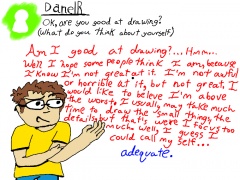 DanelR
Ok, are you good at drawing?
(What do you think about yourself)
Am I good at drawing?...Hmm...
Well I hope some people think I am, because
I know I'm not great at it. I'm not awful
or horrible at it, but not great, I
would like to believe I'm above
the worst. I usually may take much
time to draw the small things, the
details, but that's were I focus too
much. Well, I guess I
could call my self...
adequate.